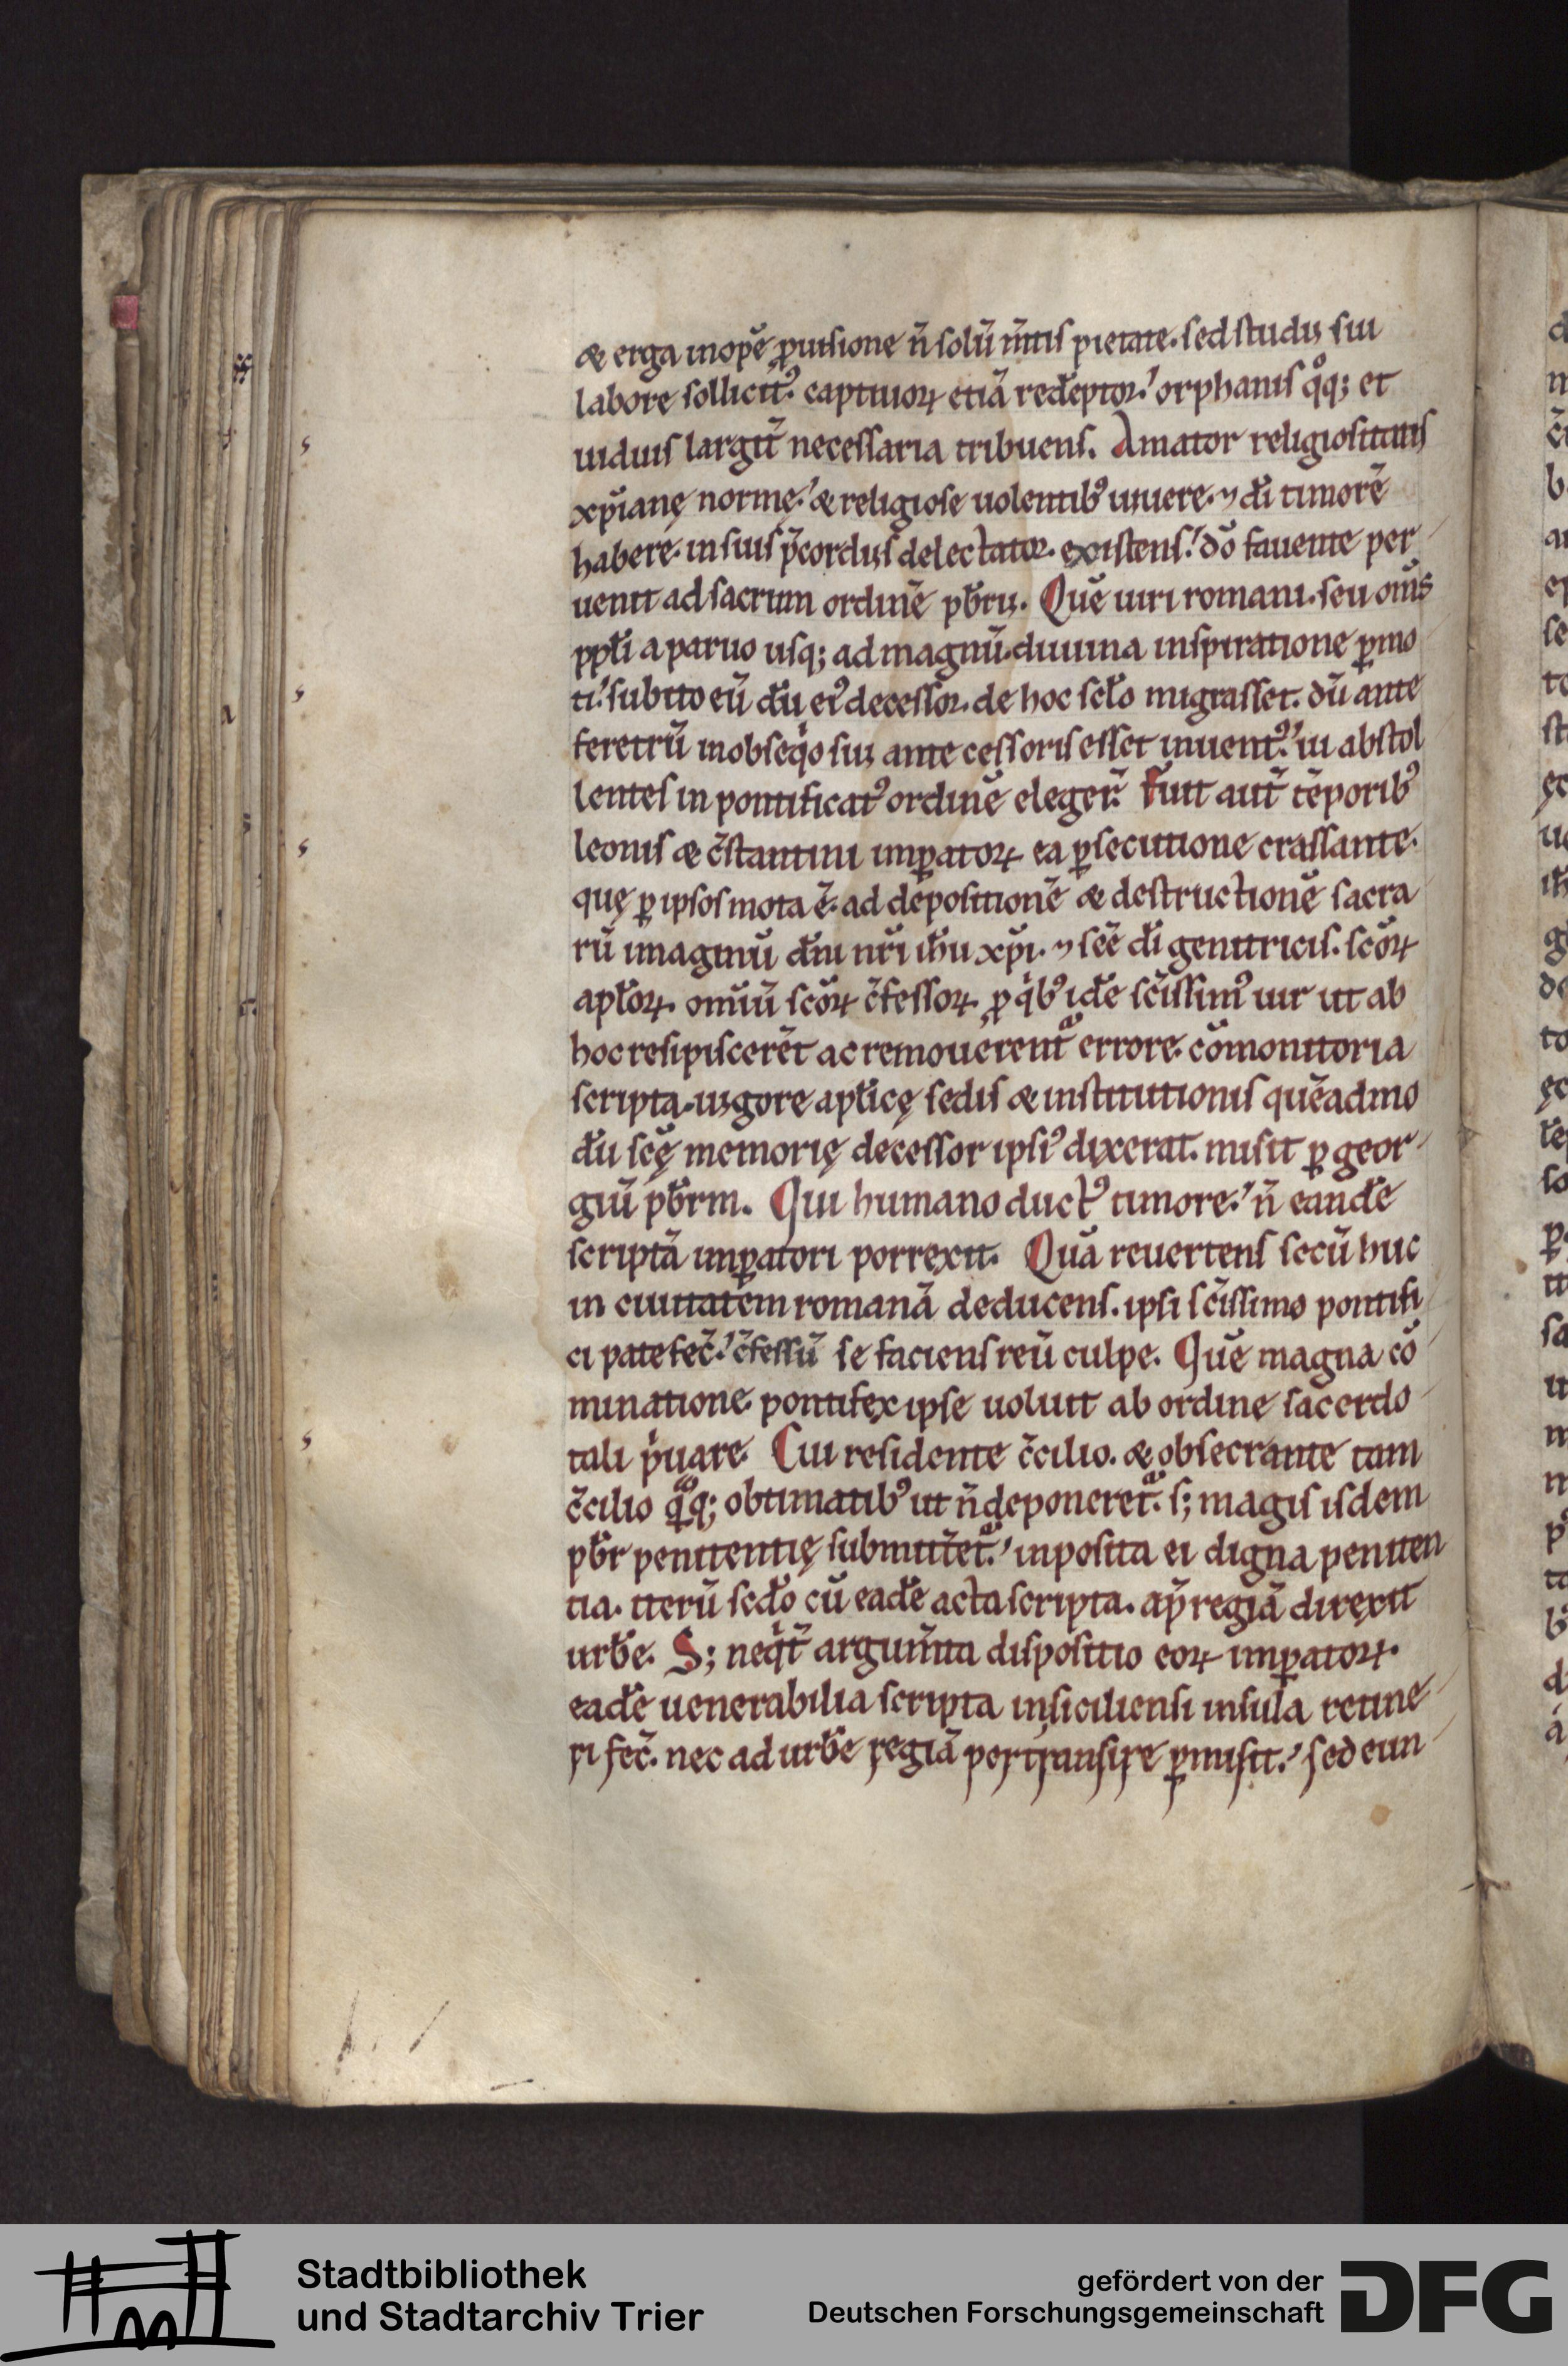 & erga inopẽ ꝓuisione ñ solũ m̃tis pietate. sed studiis sui
labore sollicit᷒. captiuoꝝ etiã redẽptor. orphanis qͦq; et
uiduis largit̃ necessaria tribuens. Amator religiositatis
xp̃ianę normę. & religiose uolentib᷒ uiuere. ⁊ di̅ timorẽ
habere. in suis p̃cordiis delectator existens. dõ fauente per
uenit ad sacrum ordinẽ pb̃rii. Quẽ uiri romani. seu om̃s
pp̃li a paruo usq; ad magnũ. diuina inspiratione ꝑmo
ti. subito eũ dũ ei᷒ decessor. de hoc sc̃lo migrasset. dũ ante
feretrũ in obseqͥo sui ante cessoris esset inuent᷒. ui abstol
lentes in pontificat᷒ ordinẽ eleger̃. Fuit aut̃ tẽporib᷒
leonis & c̃stantini imꝑatoꝝ ea ꝑsecutione crassante.
quę ꝑ ipsos mota ẽ. ad depositionẽ & destructionẽ sacra
rũ imaginũ dñi nr̃i ih̃u xp̃i. ⁊ sc̃ẽ di̅ genitricis. sc̃oꝝ
apl̃oꝝ. omiũ sc̃oꝝ c̃fessoꝝ. ꝓ qͥb᷒ idẽ sc̃issim᷒ uir ut ab
hoc resipiscerẽt ac remouerentᵃ errore. cõmonitoria
scripta. uigore apl̃icę sedis & institutionis quẽadmo
dũ sc̃ę memorię decessor ipsi᷒ dixerat. misit ꝑ geor
giũ pb̃rm. Qui humano duct᷒ timore. ñ eandẽ
scriptã imꝑatori porrexit. Quã reuertens secũ huc
in ciuitatem romanã deducens. ipsi sc̃issimo pontifi
ci patefec̃. c̃fessũ se faciens reũ culpe. Quẽ magna cõ
minatione pontifex ipse uoluit ab ordine sacerdo
tali pͥuare. Cui residente c̃cilio. & obsecrante tam
c̃cilio qͣq; obtimatib᷒ ut ñ deponeretᵃ. s; magis isdem
pb̃r penitentię submittet̃ᵃ. inposita ei digna peniten
tia. iterũ sc̃do cũ eadẽ acta scripta. ap̃ regiã direxit
urbẽ. S; neqͥt̃ argum̃ta dispositio eoꝝ imꝑatoꝝ.
eadẽ uenerabilia scripta in siciliensi insula retine
ri fec̃. nec ad urbẽ regiã pertransire ꝑmisit. sed eun
Stadtbibliothek
und Stadtarchiv Trier
gefördert von der
Deutschen Forschungsgemeinschaft
DFG